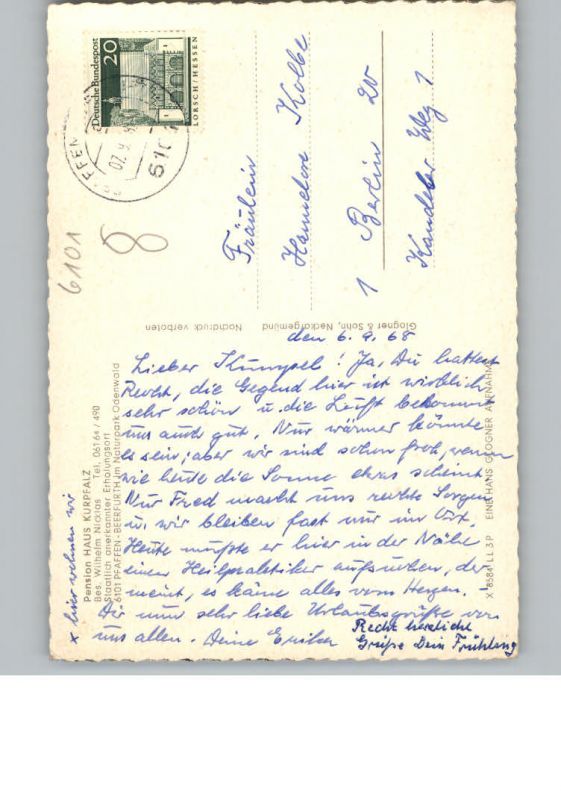 den 6. 9. 68
Lieber ! Ja, Du hattest
Recht, die Gegend hier ist wirklich
sehr schön u. die Luft bekommt
uns auch gut. Nur wärmer könnte
es sein; aber wir sind schon froh, wenn
wie heute die Sonne etwas scheint.
Nur Fred macht uns rechte Sorgen
u. wir bleiben fast nur im Ort.
Heute mußte er hier in der Nähe
einen Heilpraktiker aufsuchen, der
meint, es käme alles vom Herzen.
Dir nun sehr liebe Urlaubsgrüße von
uns allen. Deine Erika
Recht herzliche
Grüße Dein Frühling
x hier wohnen wir
Pension HAUS KURPFALZ
Bes. Wilhelm Nicklas Tel. 061 64 / 490
Staatlich anerkannter Erholungsort
6101 PFAFFEN-BEERFURTH im Naturpark Odenwald
X 8584 LL 3 P EINE HANS GLOGNER AUFNAHME
Glogner & Sohn, Neckargemünd Nachdruck verboten
Fräulein
Hannelore Kolbe
1 Berlin 20
Kandeler Weg 1
Deutsche Bundespost
20
LORSCH/HESSEN
6101
8